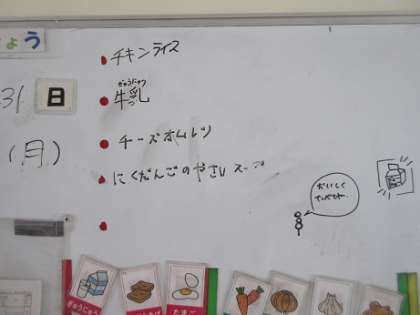 きょう
31日
(月)
チキンライス
ぎゅうにゅう
牛乳
チーズオムレツ
にくだんごのやさいスープ
おいしく
ぎゅうにゅう
たまご